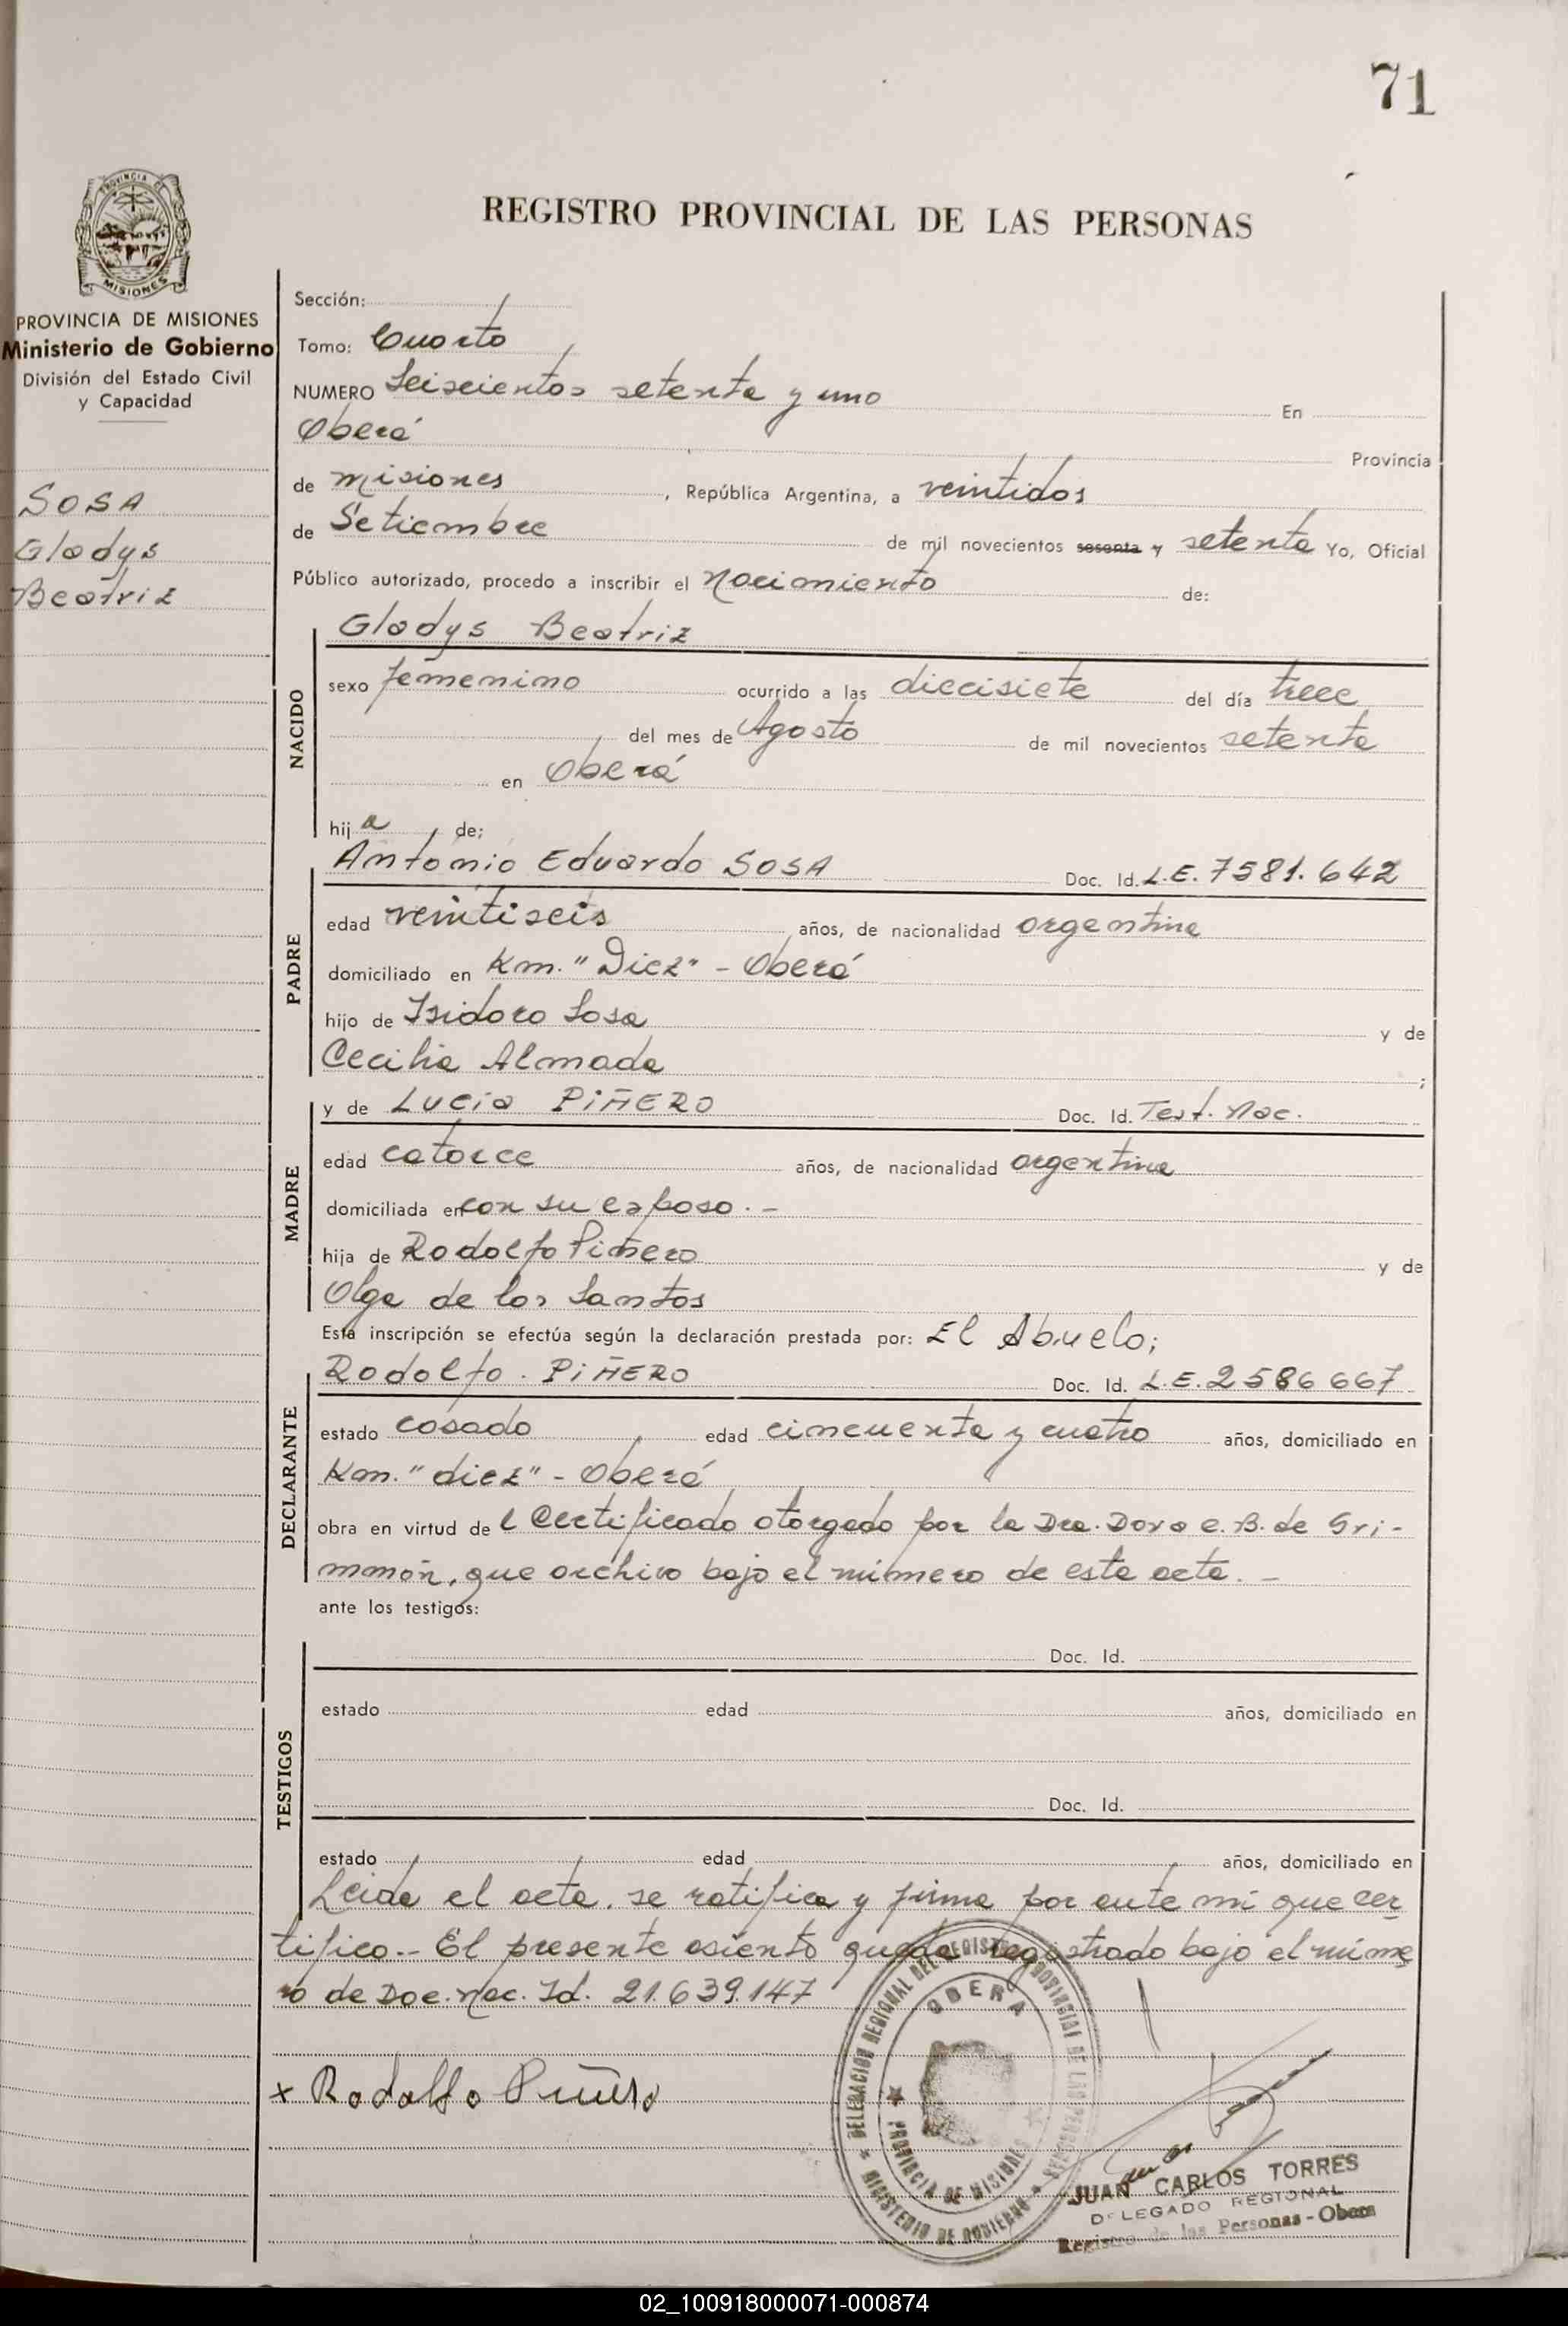 71
REGISTRO PROVINCIAL DE LAS PERSONAS
PROVINCIA DE MISIONES
PROVINCIA DE MISIONES
Ministerio de Gobierno
División del Estado Civil
y Capacidad
SOSA
Gladys
Beatriz
Sección:
Tomo: Cuarto
NUMERO Seiscientos setenta y uno En
Oberá Provincia
de Misiones, República Argentina, a veintidos
de Setiembre de mil novecientos sesenta y setenta Yo, Oficial
Público autorizado, procedo a inscribir el Nacimiento de:
Gladys Beatriz
NACIDO
sexo femenino ocurrido a las diecisiete del día trece
del mes de Agosto de mil novecientos setenta
en Oberá
hij a de;
PADRE
Antonio Eduardo SOSA Doc. Id. L.E. 7581.642
edad veintiseis años, de nacionalidad argentina
domiciliado en Km. "Diez" - Oberá
hijo de Isidoro Sosa y de
Cecilia Almada ;
MADRE
y de Lucia PIÑERO Doc. Id. Test. Nac.
edad catorce años, de nacionalidad argentina
domiciliada en con su esposo. -
hija de Rodolfo Piñero y de
Olga de los Santos
Esta inscripción se efectúa según la declaración prestada por: El Abuelo;
DECLARANTE
Rodolfo. PIÑERO Doc. Id. L.E. 2586667
estado casado edad cincuenta y cuatro años, domiciliado en
Km. "diez" - Oberá
obra en virtud de l Certificado otorgado por la Dra. Dora e. B. de Gri-
mmón, que archivo bajo el número de esta acta. -
ante los testigos:
TESTIGOS
Doc. Id.
estado edad años, domiciliado en
Doc. Id.
estado edad años, domiciliado en
Leida el acta, se ratifica y firma por ante mi que cer
tifico.- El presente asiento queda registrado bajo el núme
ro de Doc. Nac. Id. 21.639.147
x Rodolfo Piñero
DELEGACION REGIONAL DEL REGISTRO PROVINCIAL DE LAS PERSONAS
MINISTERIO DE GOBIERNO
OBERA
PROVINCIA DE MISIONES
JUAN CARLOS TORRES
DELEGADO REGIONAL
Registro de las Personas - Obera
02_100918000071-000874